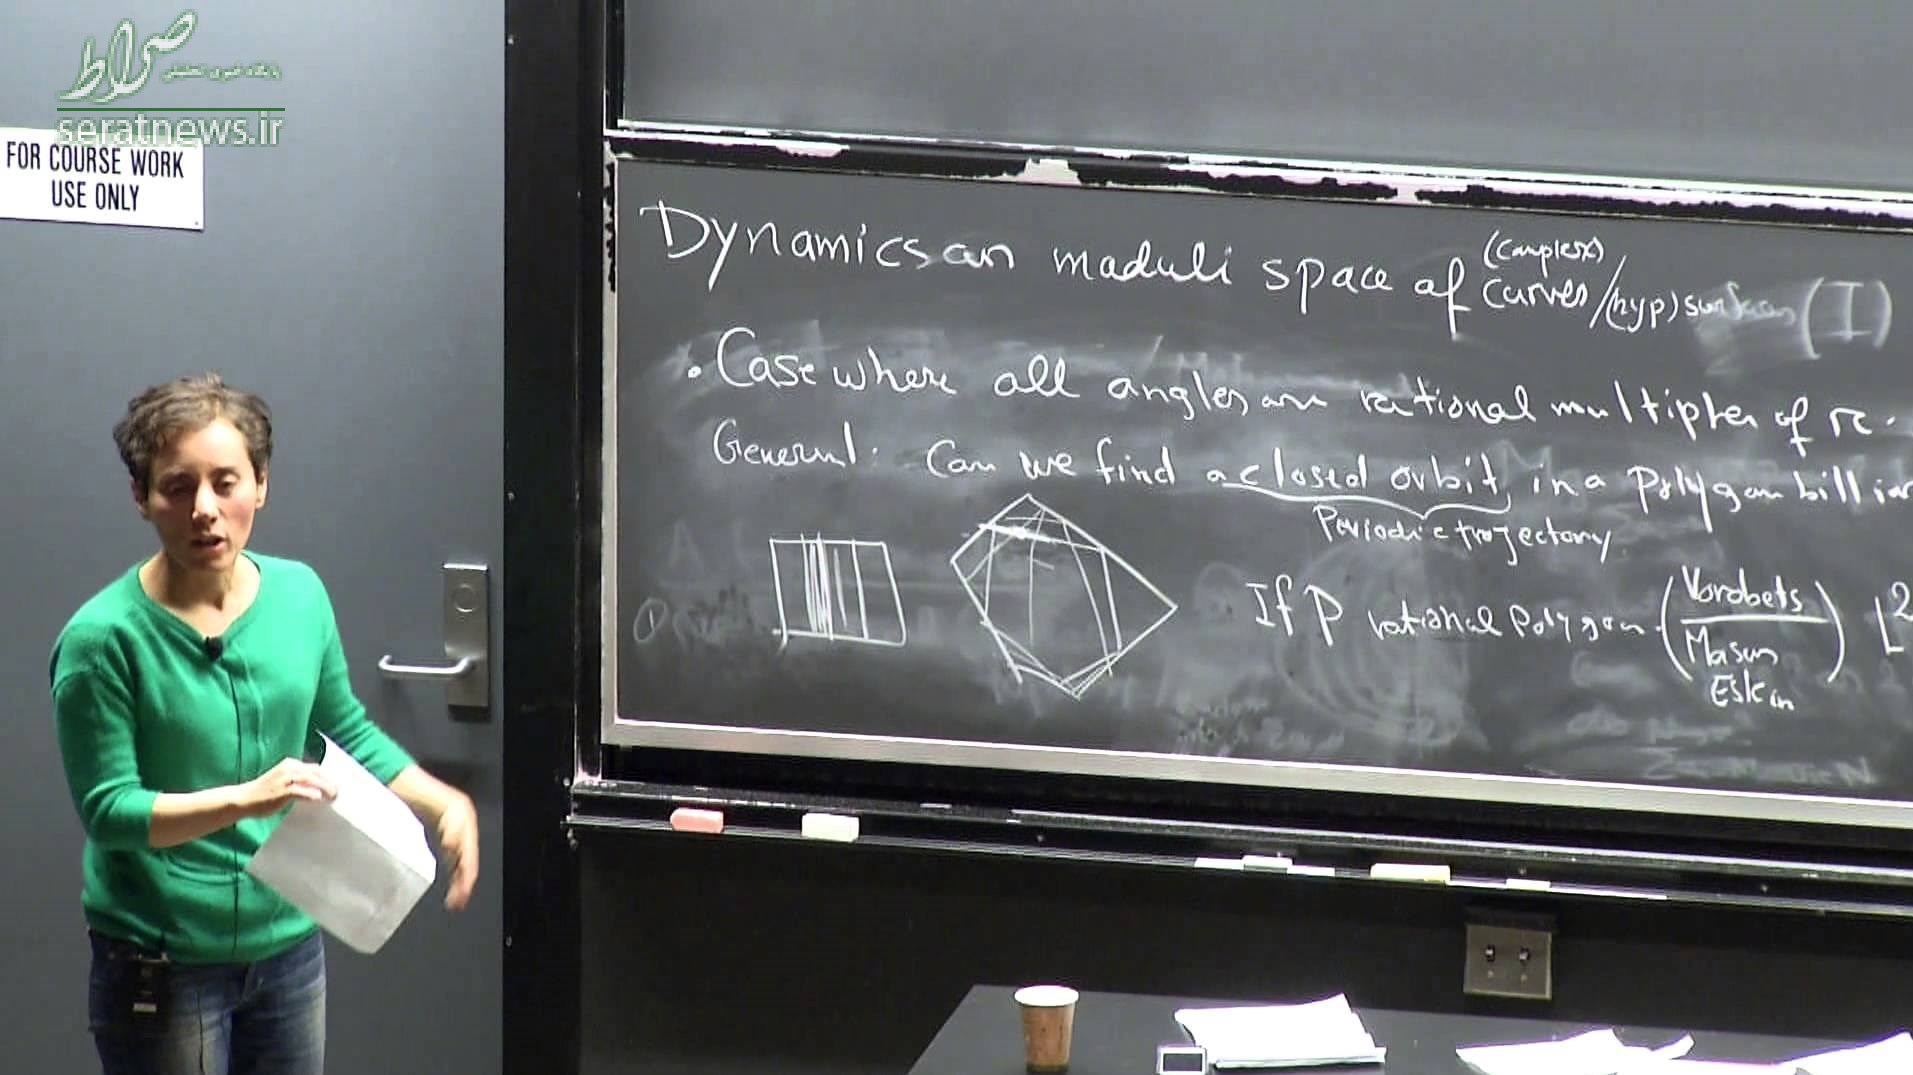 صراط
پایگاه خبری تحلیلی
seratnews.ir
FOR COURSE WORK
USE ONLY
Dynamics on moduli space of (complex) curves/(hyp) surfaces (I)
• Case where all angles are rational multiples of π.
General: Can we find a closed orbit, in a polygon billiar
Periodic trajectory
If P rational polygon. (Vorobets
Masur
Eskin) L²